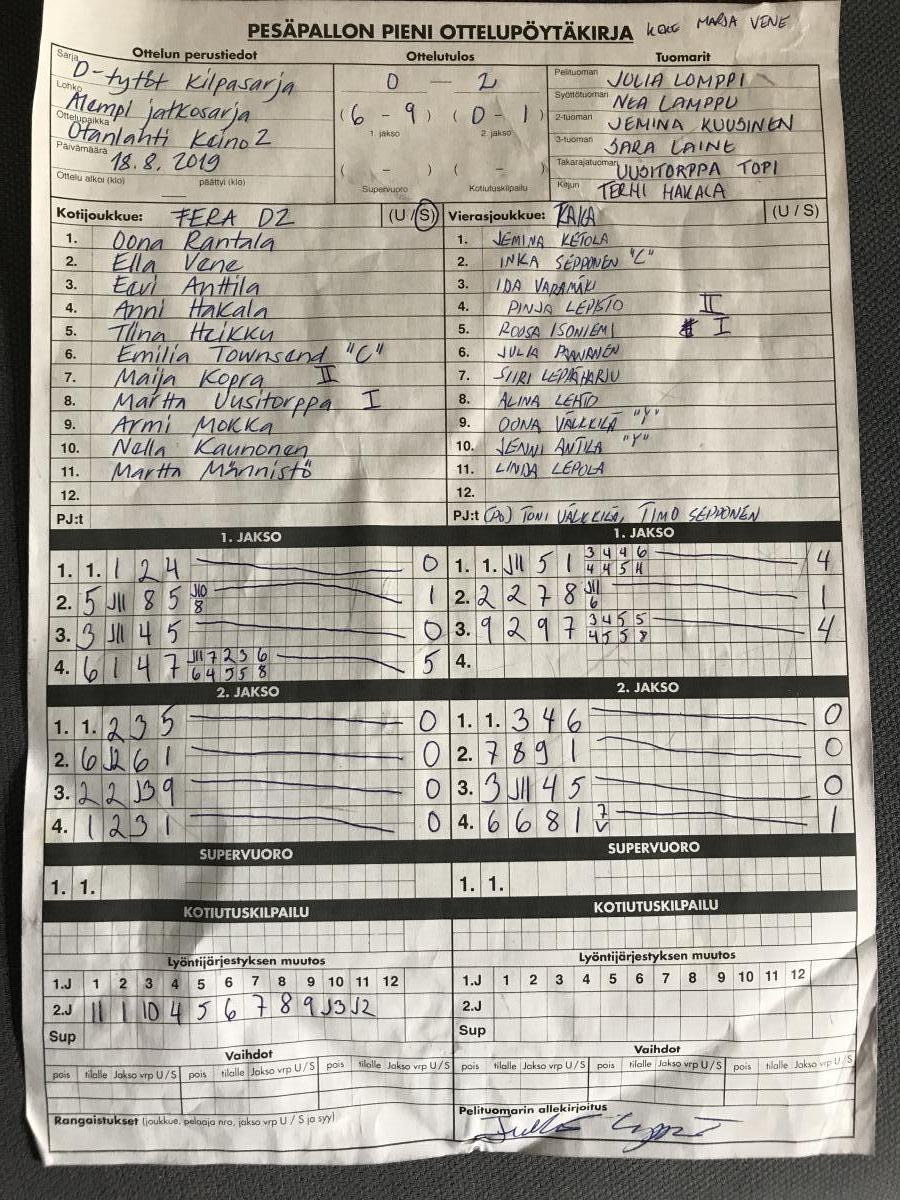 PESÄPALLON PIENI OTTELUPÖYTÄKIRJA KEKE MARJA VENE
Ottelun perustiedot Ottelutulos Tuomarit
Sarja D-tytöt Kilpasarja 0 – 2 Pelituomari JULIA LOMPPI
Lohko Alempi jatkosarja (6 - 9) (0 - 1) Syöttötuomari NEA LAMPPU
Ottelupaikka Otanlahti Keino 2 1. jakso 2. jakso 2-tuomari JEMINA KUUSINEN
Päivämäärä 18.8. 2019 3-tuomari SARA LAINE
( - ) ( - ) Takarajatuomari UUSITORPPA TOPI
Ottelu alkoi (klo) päättyi (klo) Supervuoro Kotiutuskilpailu Kirjuri TERHI HAKALA
Kotijoukkue: FERA D2 (U / S) Vierasjoukkue: KAKA (U / S)
1. Oona Rantala 1. JEMINA KETOLA
2. Ella Vene 2. INKA SEPPONEN "C"
3. Eevi Anttila 3. IDA VARAMÄKI
4. Anni Hakala 4. PINJA LEPISTÖ II
5. Tiina Heikku 5. ROOSA ISONIEMI I
6. Emilia Townsend "C" 6. JULIA PAANANEN
7. Maija Kopra II 7. SIIRI LEPPÄHARJU
8. Martta Uusitorppa I 8. ALINA LEHTO
9. Armi Mokka 9. OONA VÄLKKILÄ "Y"
10. Nella Kaunonen 10. JENNI ANTILA "Y"
11. Martta Männistö 11. LINDA LEPOLA
12. 12.
PJ:t PJ:t (PO) TONI VÄLKKILÄ, TIMO SEPPONEN
1. JAKSO 1. JAKSO
1. 1. 1 2 4 0 1. 1. J11 5 1 3 4 4 6 4 4 5 11 4
2. 5 J11 8 5 J10 8 1 2. 2 2 7 8 J11 6 1
3. 3 J11 4 5 0 3. 9 2 9 7 3 4 5 5 4 5 5 8 4
4. 6 1 4 7 J11 7 2 3 6 6 4 5 5 8 5 4.
2. JAKSO 2. JAKSO
1. 1. 2 3 5 0 1. 1. 3 4 6 0
2. 6 J2 6 1 0 2. 7 8 9 1 0
3. 2 2 J3 9 0 3. 3 J11 4 5 0
4. 1 2 3 1 0 4. 6 6 8 1 7 V 1
SUPERVUORO SUPERVUORO
1. 1. 1. 1.
KOTIUTUSKILPAILU KOTIUTUSKILPAILU
Lyöntijärjestyksen muutos Lyöntijärjestyksen muutos
1.J 1 2 3 4 5 6 7 8 9 10 11 12 1.J 1 2 3 4 5 6 7 8 9 10 11 12
2.J 11 1 10 4 5 6 7 8 9 J3 J2 2.J
Sup Sup
Vaihdot Vaihdot
pois tilalle Jakso vrp U / S pois tilalle Jakso vrp U / S pois tilalle Jakso vrp U / S pois tilalle Jakso vrp U / S pois tilalle Jakso vrp U / S pois tilalle Jakso vrp U / S
Rangaistukset (joukkue, pelaaja nro, jakso vrp U / S ja syy) Pelituomarin allekirjoitus